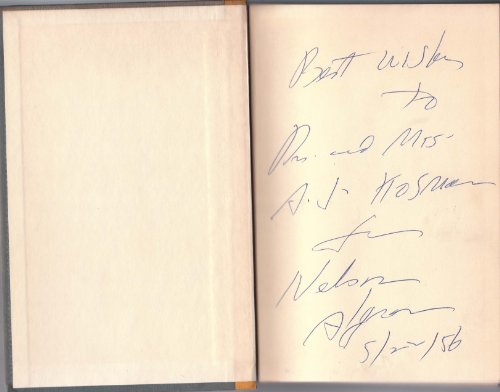 Best Wishes
to
Dr. and Mrs.
A. J.
from
Nelson
Algren
5/22/56